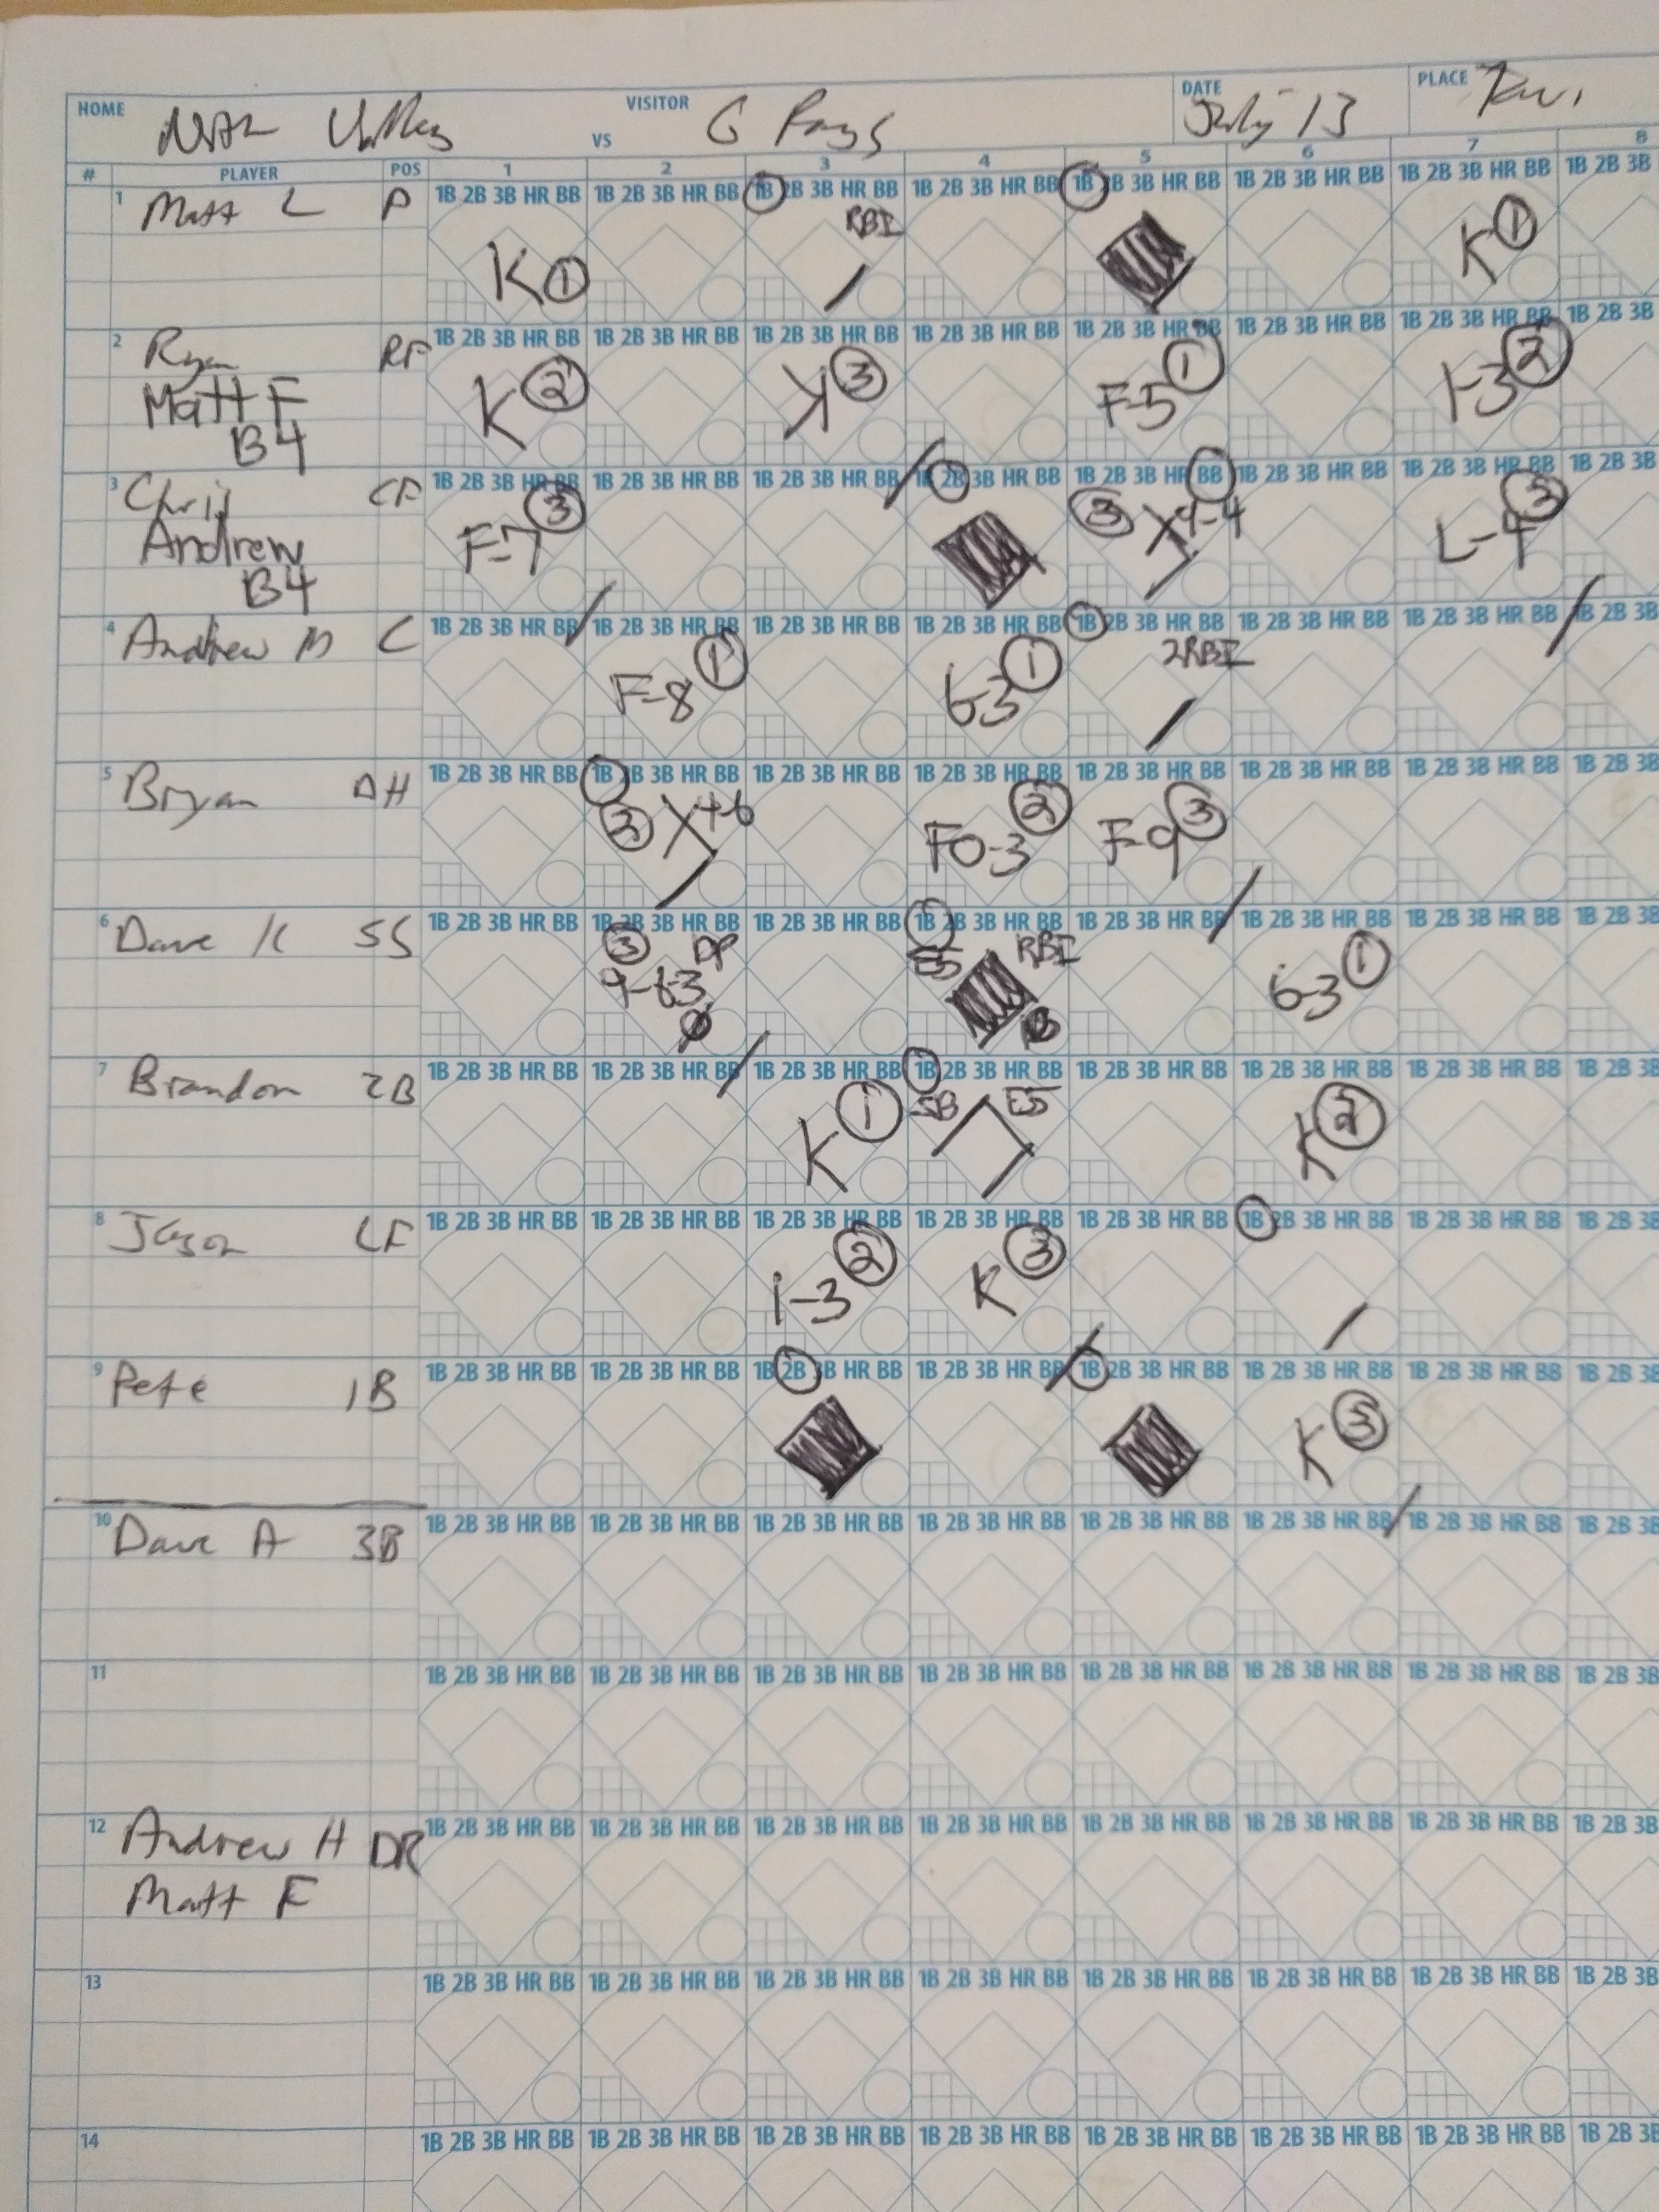 HOME VISITOR G Rays DATE July 13 PLACE
VS
# PLAYER POS 1 2 3 4 5 6 7 8
1B 2B 3B HR BB 1B 2B 3B HR BB 1B 2B 3B HR BB 1B 2B 3B HR BB 1B 2B 3B HR BB 1B 2B 3B HR BB 1B 2B 3B HR BB 1B 2B 3B
1 Matt L P K 1 RBI K 1
1B 2B 3B HR BB 1B 2B 3B HR BB 1B 2B 3B HR BB 1B 2B 3B HR BB 1B 2B 3B HR BB 1B 2B 3B HR BB 1B 2B 3B HR BB 1B 2B 3B
2 Ryan RF
Matt F K 2 K 3 F-5 1 1-3 2
B4
1B 2B 3B HR BB 1B 2B 3B HR BB 1B 2B 3B HR BB 1B 2B 3B HR BB 1B 2B 3B HR BB 1B 2B 3B HR BB 1B 2B 3B HR BB 1B 2B 3B
3 Chris CF
Andrew F-7 3 3 4-4 L-4 3
B4
1B 2B 3B HR BB 1B 2B 3B HR BB 1B 2B 3B HR BB 1B 2B 3B HR BB 1B 2B 3B HR BB 1B 2B 3B HR BB 1B 2B 3B HR BB 1B 2B 3B
4 Andrew M C F-8 1 6-3 1 2RBI
1B 2B 3B HR BB 1B 2B 3B HR BB 1B 2B 3B HR BB 1B 2B 3B HR BB 1B 2B 3B HR BB 1B 2B 3B HR BB 1B 2B 3B HR BB 1B 2B 3B
5 Bryan DH 2 4-6 FO-3 2 F-9 3
1B 2B 3B HR BB 1B 2B 3B HR BB 1B 2B 3B HR BB 1B 2B 3B HR BB 1B 2B 3B HR BB 1B 2B 3B HR BB 1B 2B 3B HR BB 1B 2B 3B
6 Dave K SS 3 DP E5 RBI 6-3 1
1B 2B 3B HR BB 1B 2B 3B HR BB 1B 2B 3B HR BB 1B 2B 3B HR BB 1B 2B 3B HR BB 1B 2B 3B HR BB 1B 2B 3B HR BB 1B 2B 3B
7 Brandon 2B K 1 SB E5 K 2
1B 2B 3B HR BB 1B 2B 3B HR BB 1B 2B 3B HR BB 1B 2B 3B HR BB 1B 2B 3B HR BB 1B 2B 3B HR BB 1B 2B 3B HR BB 1B 2B 3B
8 Jason LF 1-3 2 K 3
1B 2B 3B HR BB 1B 2B 3B HR BB 1B 2B 3B HR BB 1B 2B 3B HR BB 1B 2B 3B HR BB 1B 2B 3B HR BB 1B 2B 3B HR BB 1B 2B 3B
9 Pete 1B K 3
1B 2B 3B HR BB 1B 2B 3B HR BB 1B 2B 3B HR BB 1B 2B 3B HR BB 1B 2B 3B HR BB 1B 2B 3B HR BB 1B 2B 3B HR BB 1B 2B 3B
10 Dave A 3B
11 1B 2B 3B HR BB 1B 2B 3B HR BB 1B 2B 3B HR BB 1B 2B 3B HR BB 1B 2B 3B HR BB 1B 2B 3B HR BB 1B 2B 3B HR BB 1B 2B 3B
1B 2B 3B HR BB 1B 2B 3B HR BB 1B 2B 3B HR BB 1B 2B 3B HR BB 1B 2B 3B HR BB 1B 2B 3B HR BB 1B 2B 3B HR BB 1B 2B 3B
12 Andrew H DR
Matt F
13 1B 2B 3B HR BB 1B 2B 3B HR BB 1B 2B 3B HR BB 1B 2B 3B HR BB 1B 2B 3B HR BB 1B 2B 3B HR BB 1B 2B 3B HR BB 1B 2B 3B
14 1B 2B 3B HR BB 1B 2B 3B HR BB 1B 2B 3B HR BB 1B 2B 3B HR BB 1B 2B 3B HR BB 1B 2B 3B HR BB 1B 2B 3B HR BB 1B 2B 3B